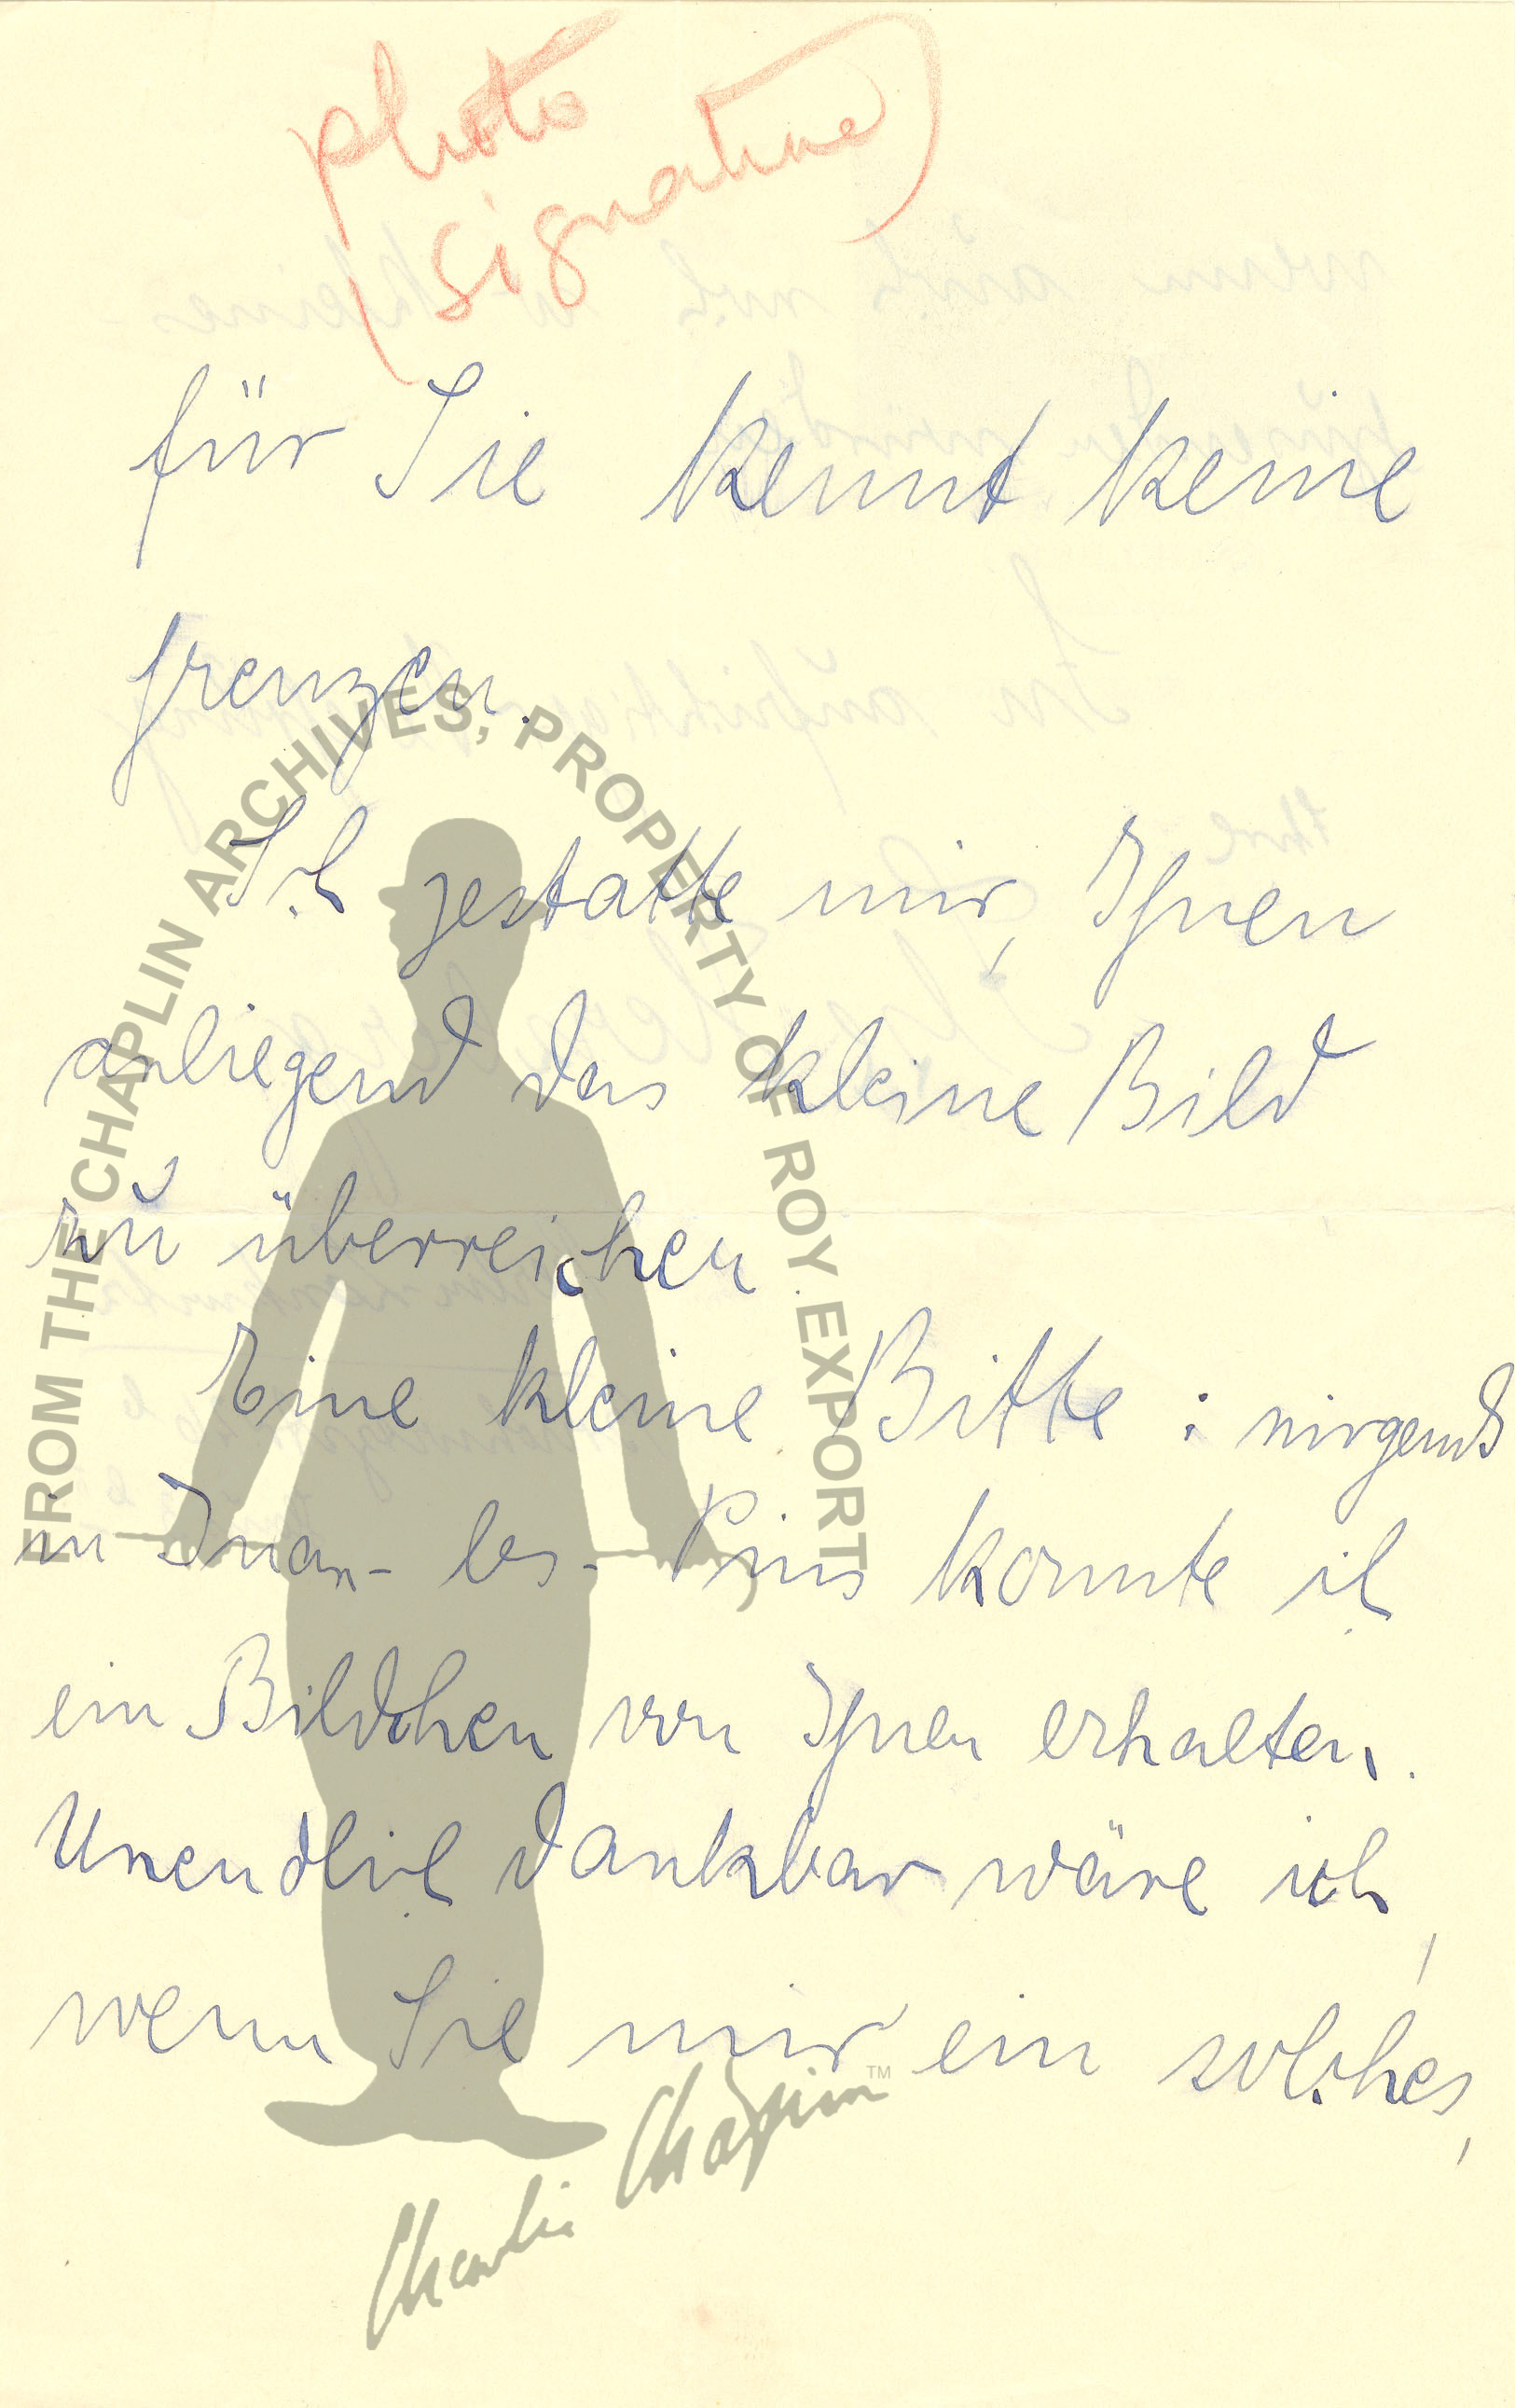 photo
(signature)
für Sie kennt keine
Grenzen.
Ich gestatte mir, Ihnen
anliegend das kleine Bild
zu überreichen
Eine kleine Bitte: nirgends
in Juan-les-Pins konnte ich
ein Bildchen von Ihnen erhalten.
Unendlich dankbar wäre ich,
wenn Sie mir ein solches,
FROM THE CHAPLIN ARCHIVES, PROPERTY OF ROY EXPORT
Charlie Chaplin TM